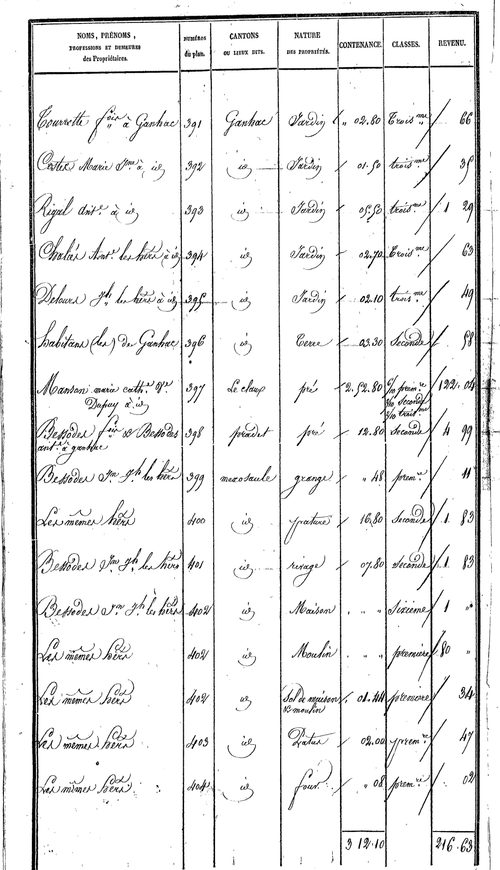 NOMS, PRÉNOMS, PROFESSIONS ET DEMEURES des Propriétaires. NUMÉROS du plan. CANTONS OU LIEUX DITS. NATURE DES PROPRIÉTÉS. CONTENANCE. CLASSES. REVENU.
Tourrette fois à Ganhac 391 Ganhac Jardin " 02.80 Troisme " 66
Costes Marie Jme à id 392 id Jardin 01.50 troisme 35
Rigal Antne à id 393 id Jardin 05.50 troisme 1 29
Chalès Antne les hers à id 394 id Jardin 02.70 Troisme 63
Delours Jh les hers à id 395 id Jardin 02.10 troisme 49
habitans (les) de Ganhac 396 id Terre 03.30 Seconde 58
Manson marie cathne Ve Dupuy à id 397 Le claux pré 2.52.80 premre seconde troisme 122.04
Bessodes fois & Bessodes antne à ganhac 398 pradet pré 12.80 seconde 4 99
Bessodes Jn Jh les hers 399 grange " 48 premre 11
Les mêmes hers 400 id pature 16.80 seconde 1 83
Bessodes Jn Jh les hers 401 id rivage 07.80 seconde 1 83
Bessodes Jn Jh les hers 402 id Maison " " Sixieme 1 "
Les mêmes hers 402 id Moulin " " premiere 80 "
Les mêmes hers 402 id Sol de maison & moulin 01.44 premiere 34
Les mêmes hers 403 id Patus 02.00 premre 47
Les mêmes hers 404 id four " 08 premre 02
3 12.10 216.63